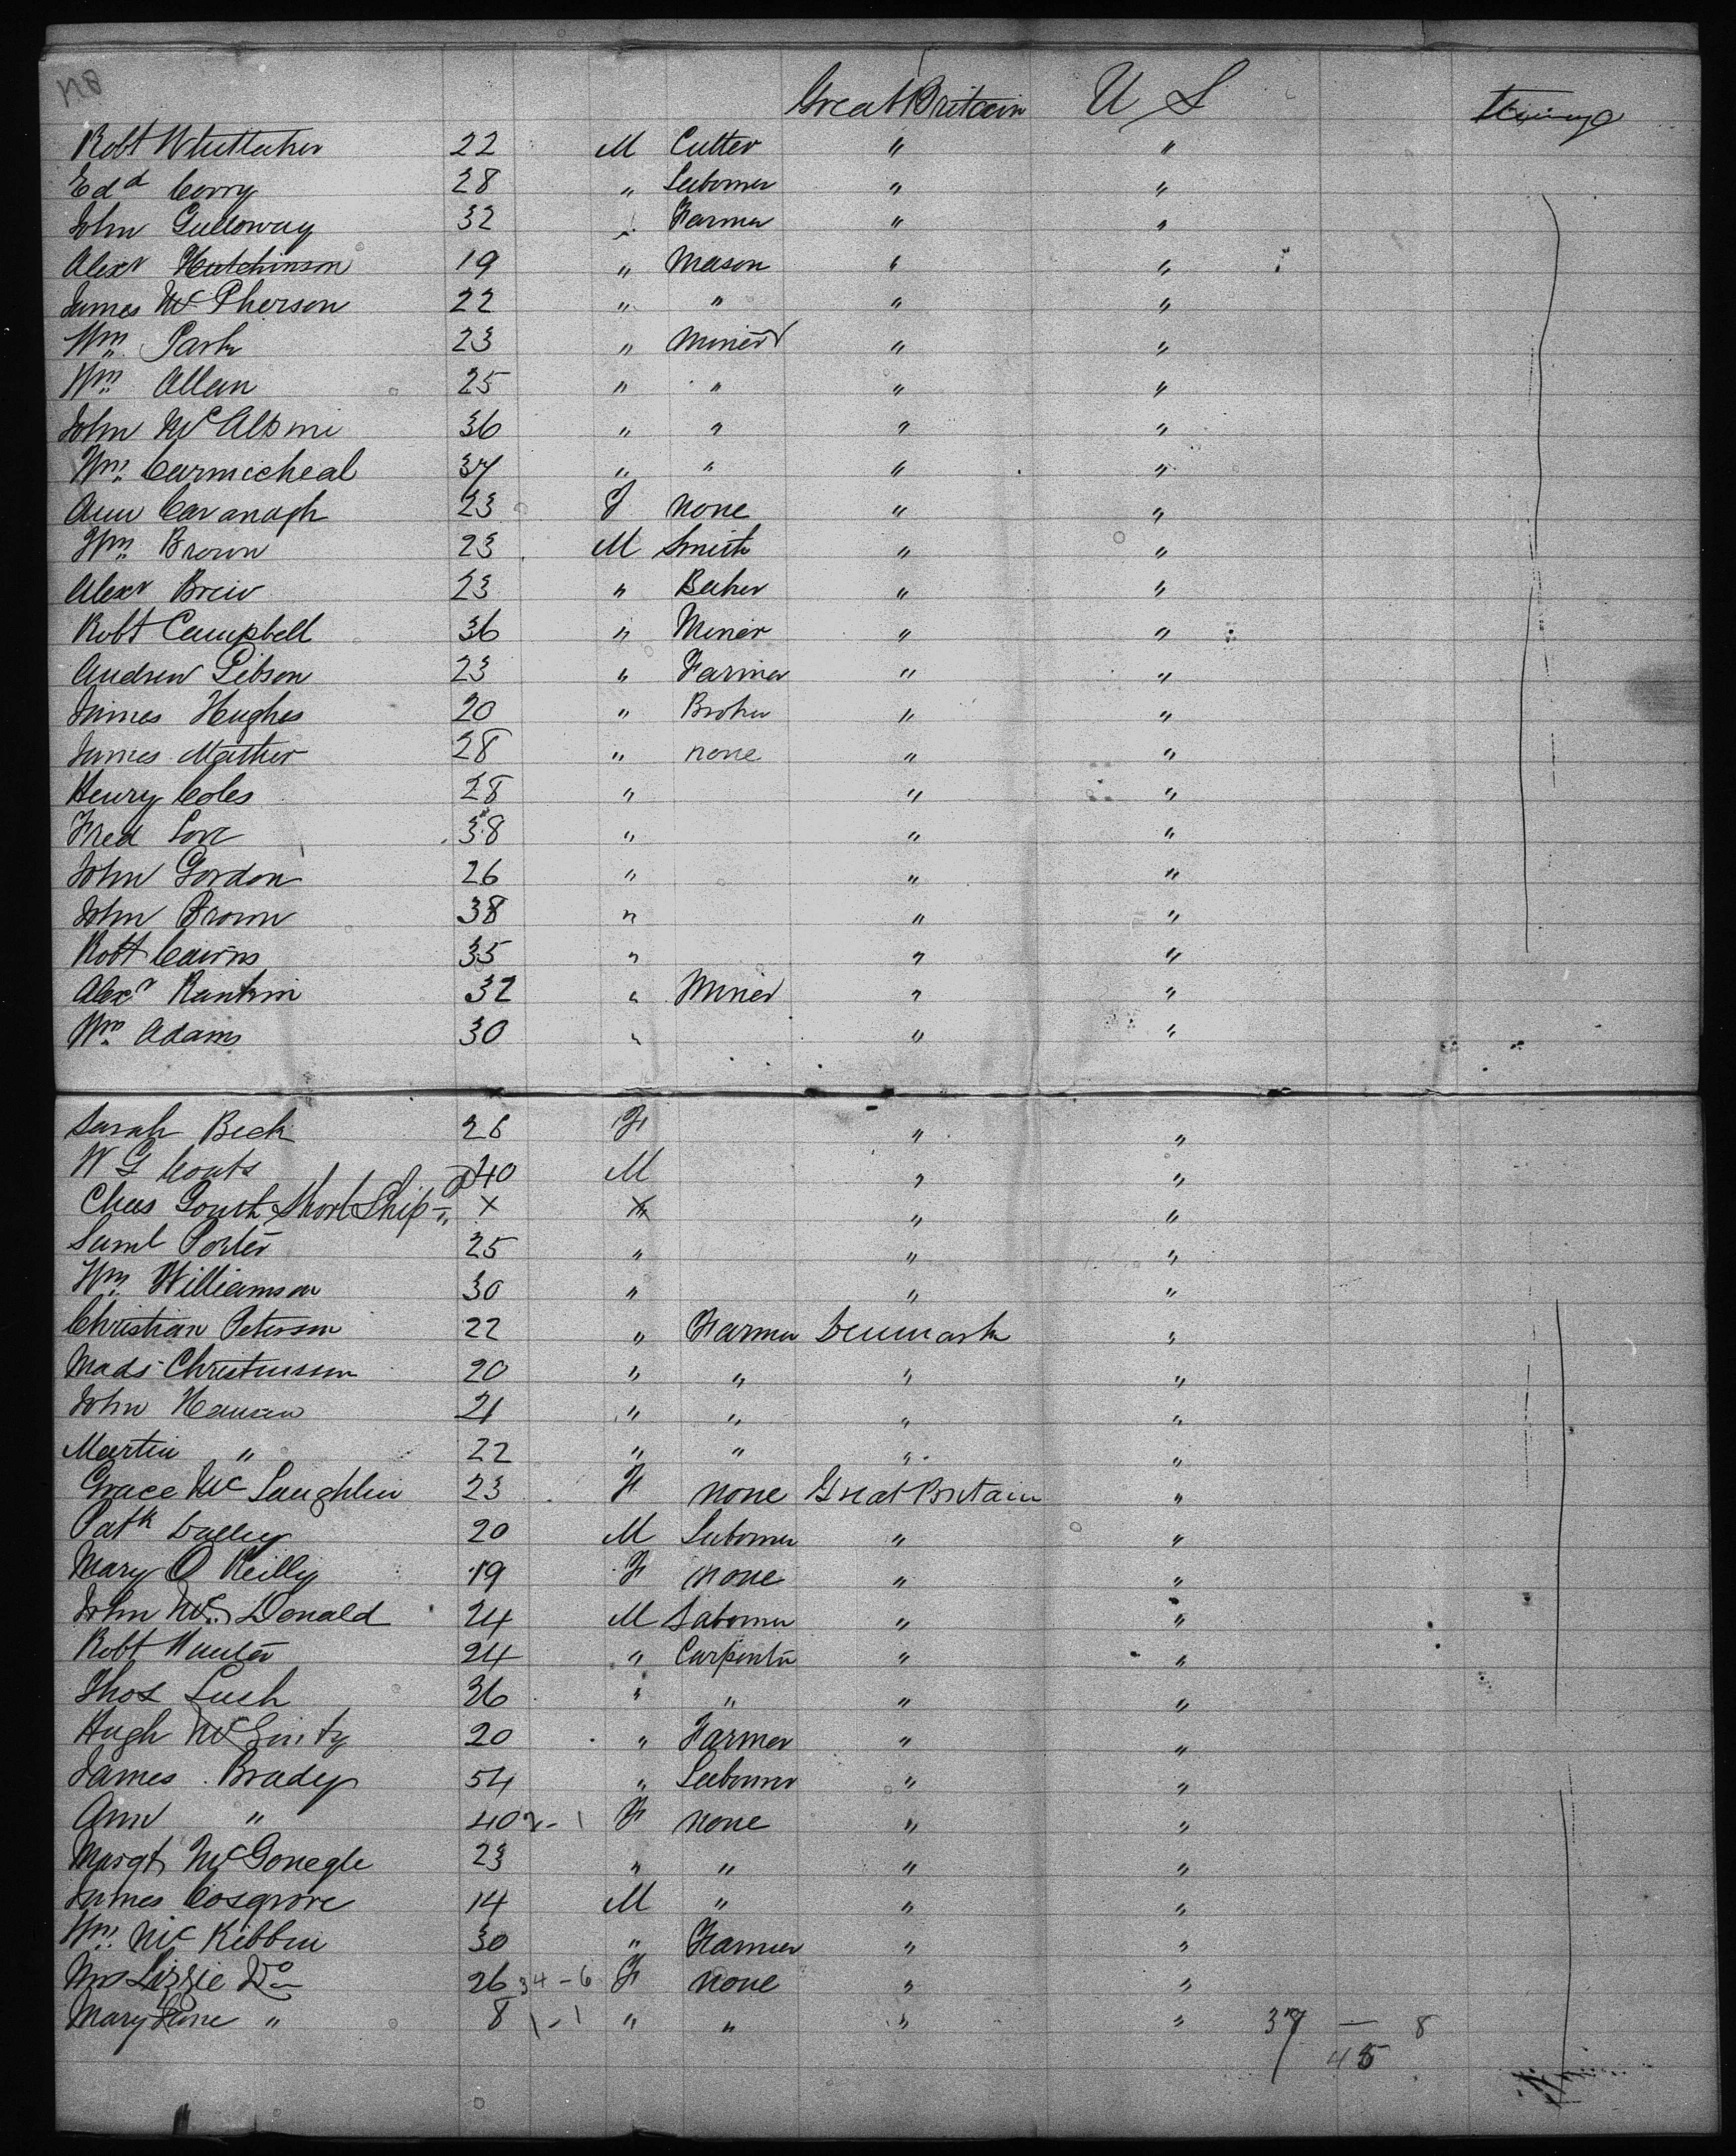 Great Britain U S
Robt Whittaker 22 M Cutter " "
Edd Corry 28 " Laborer " "
John Galloway 32 " Farmer " "
Alexr Hutchinson 19 " Mason " "
James McPherson 22 " " " "
Wm Park 23 " Miner " "
Wm Allan 25 " " " "
John McAlpine 36 " " " "
Wm Carmicheal 37 " " " "
Ann Cavanagh 23 F none " "
Wm Brown 23 M Smith " "
Alexr Brew 23 " Baker " "
Robt Campbell 36 " Miner " "
Andrew Gibson 23 " Farmer " "
James Hughes 20 " Broker " "
James Mather 28 " none " "
Henry Coles 28 " " "
Fred Love 38 " " "
John Gordon 26 " " "
John Brown 38 " " "
Robt Cairns 35 " " "
Alexr Rankin 32 " Miner " "
Wm Adams 30 " " "
Sarah Beck 26 F " "
W G Coats 40 M " "
Chas Short Ship x " "
Saml Porter 25 " " "
Wm Williamson 30 " " "
Christian Peterson 22 " Farmer Denmark "
Mads Christensen 20 " " " "
John Hansen 21 " " " "
Martin " 22 " " " "
Grace McLaughlin 23 F none Great Britain "
Patk Dalley 20 M Laborer " "
Mary O Reilly 19 F none " "
John McDonald 24 M Laborer " "
Robt Hunter 24 " Carpenter " "
Thos 26 " " " "
Hugh McGinty 20 " Farmer " "
James Brady 54 " Laborer " "
Ann " 40 2-1 F none " "
Margt McGonegle 23 " " " "
James Cosgrove 14 M " " "
Wm McKibbin 30 " Farmer " "
Mrs Lizzie Do 26 34-6 F none " "
Mary Jane " 8 1-1 " " " " 37 — 8
45